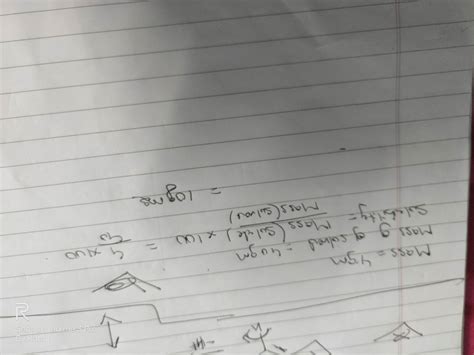 Mass = 4gm
Mass
= 40gm
Solubility = Mass (Solute) / Mass (Solven) × 100 = 4 × 100 / 40
= 10gms